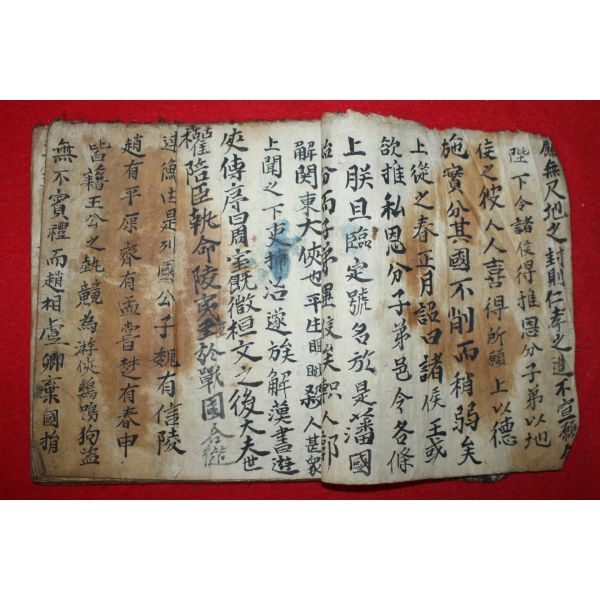 無尺地之封則仁孝之道不宣願
陛下令諸侯得推恩分子弟以地
侯之彼人人喜得所願上以德
施實分其國不削而稍弱矣
上從之春正月詔曰諸侯王或
欲推私恩分子弟邑令各條
上朕且臨定號名於是藩國
始分而子弟畢侯矣軹人郭
解関東大俠也平生睚眦殺人甚衆
上聞之下吏捕治遂族解漢書游
俠傳序曰周室既微桓文之後大夫世
權陪臣執命陵夷至於戰国合從
連衡
是列國公子魏有信陵
趙有平原齊有孟嘗楚有春申
皆藉王公之勢競為游俠鷄鳴狗盜
無不賓禮而趙相虞卿棄國捐